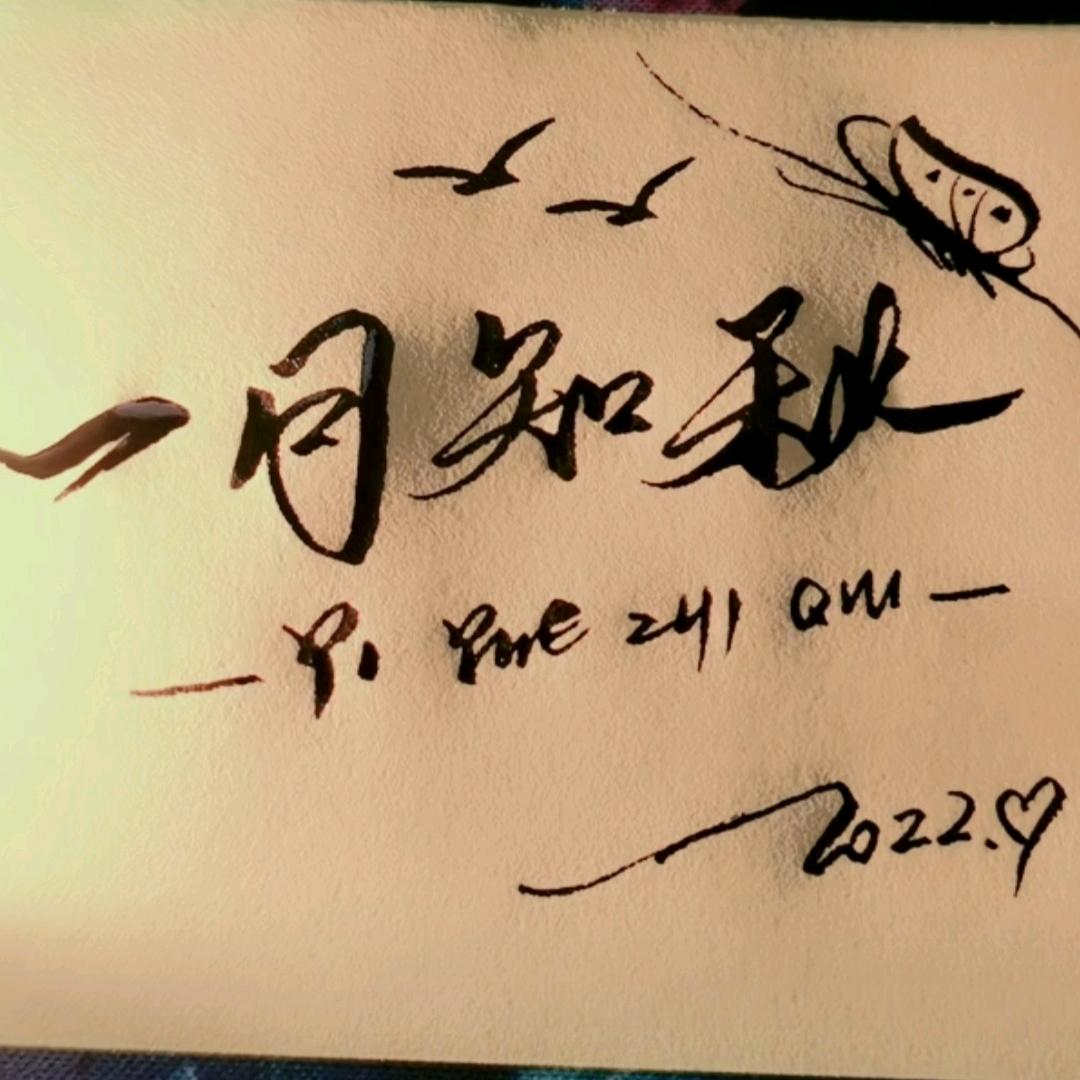 一月知秋
— YI YUE ZHI QIU —
2022.♡